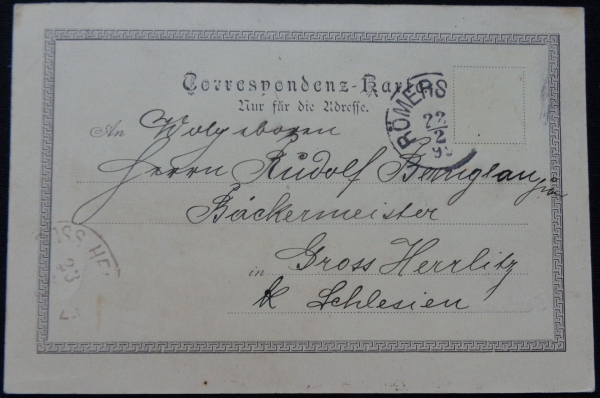 Correspondenz-Karte
Nur für die Adresse.
RÖMERS
22
2
99
An Wolgeboren
Herrn Rudolf
Bäckermeister
in Gross Herrlitz
k Schlesien
SS HE
23